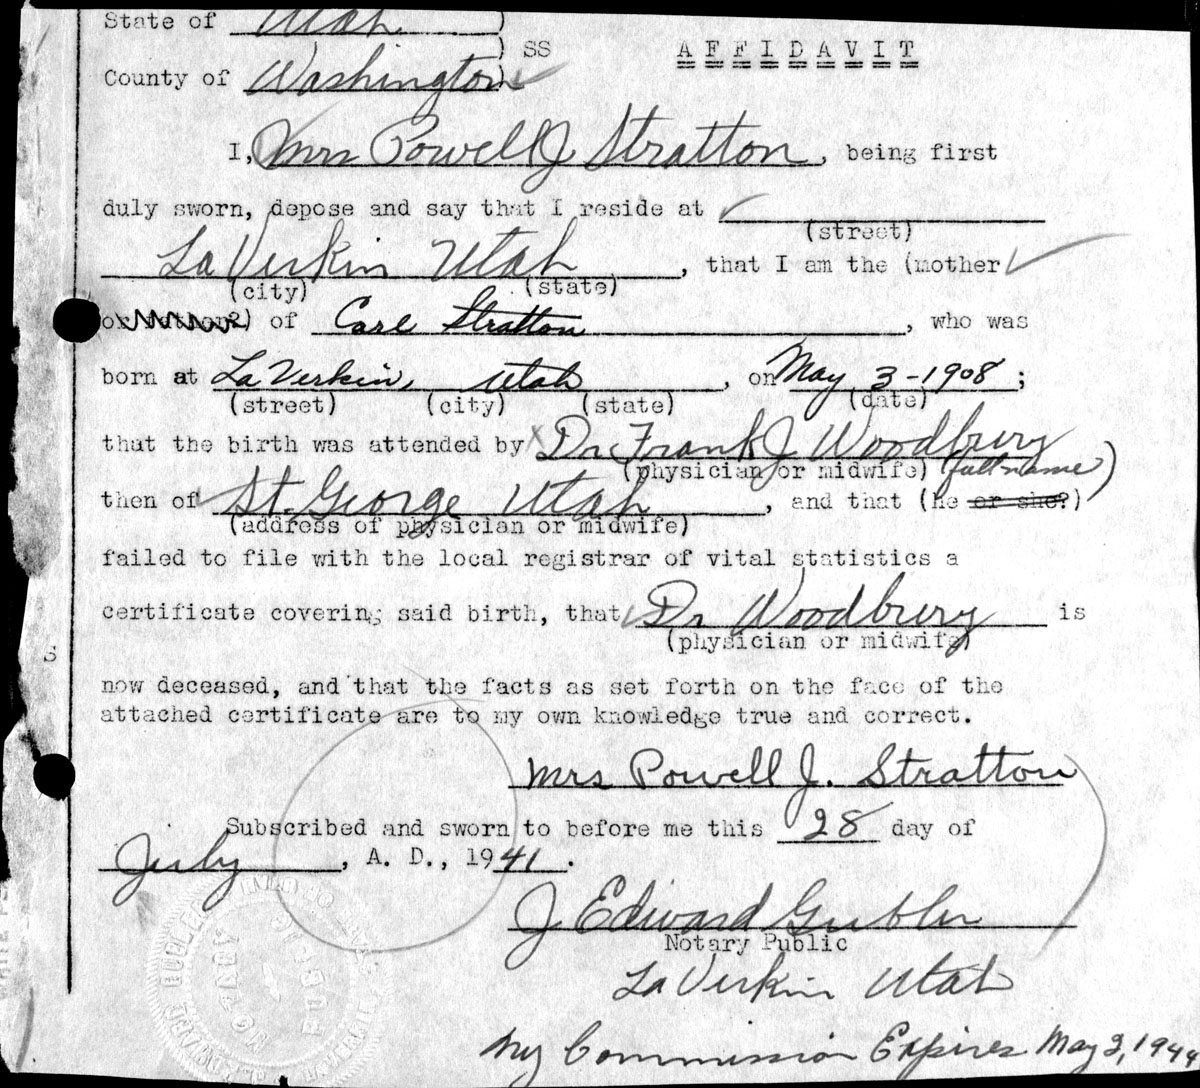 State of Utah )
) SS AFFIDAVIT
County of Washington )
I, Mrs Powell J Stratton, being first
duly sworn, depose and say that I reside at
(street)
LaVerkin Utah, that I am the (mother
(city) (state)
) of Carl Stratton, who was
born at LaVerkin, Utah, on May 3-1908;
(street) (city) (state) (date)
that the birth was attended by Dr. Frank J Woodbury
(physician or midwife) (full name)
then of St. George Utah, and that (he or she?)
(address of physician or midwife)
failed to file with the local registrar of vital statistics a
certificate covering said birth, that Dr Woodbury is
(physician or midwife)
S
now deceased, and that the facts as set forth on the face of the
attached certificate are to my own knowledge true and correct.
Mrs Powell J. Stratton
Subscribed and sworn to before me this 28 day of
July, A. D., 1941.
J Edward Gubler
Notary Public
LaVerkin Utah
My Commission Expires May 2, 1944
NOTARY PUBLIC